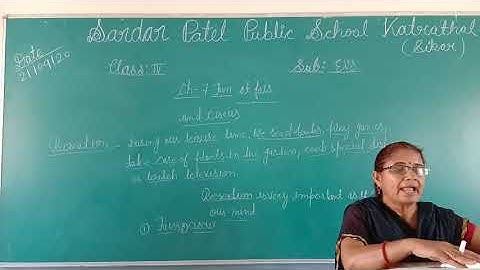 Sardar Patel Public School Katrathal
(Sikar)
Date
21/09/20
Class: IV
Sub: EVS
Ch-7 Fun at fair
and circus
Recreation - during our leisure time, We read books, play games,
take care of plants in the garden, cook special dis
or watch television.
Recreation is very important as it
our mind
①